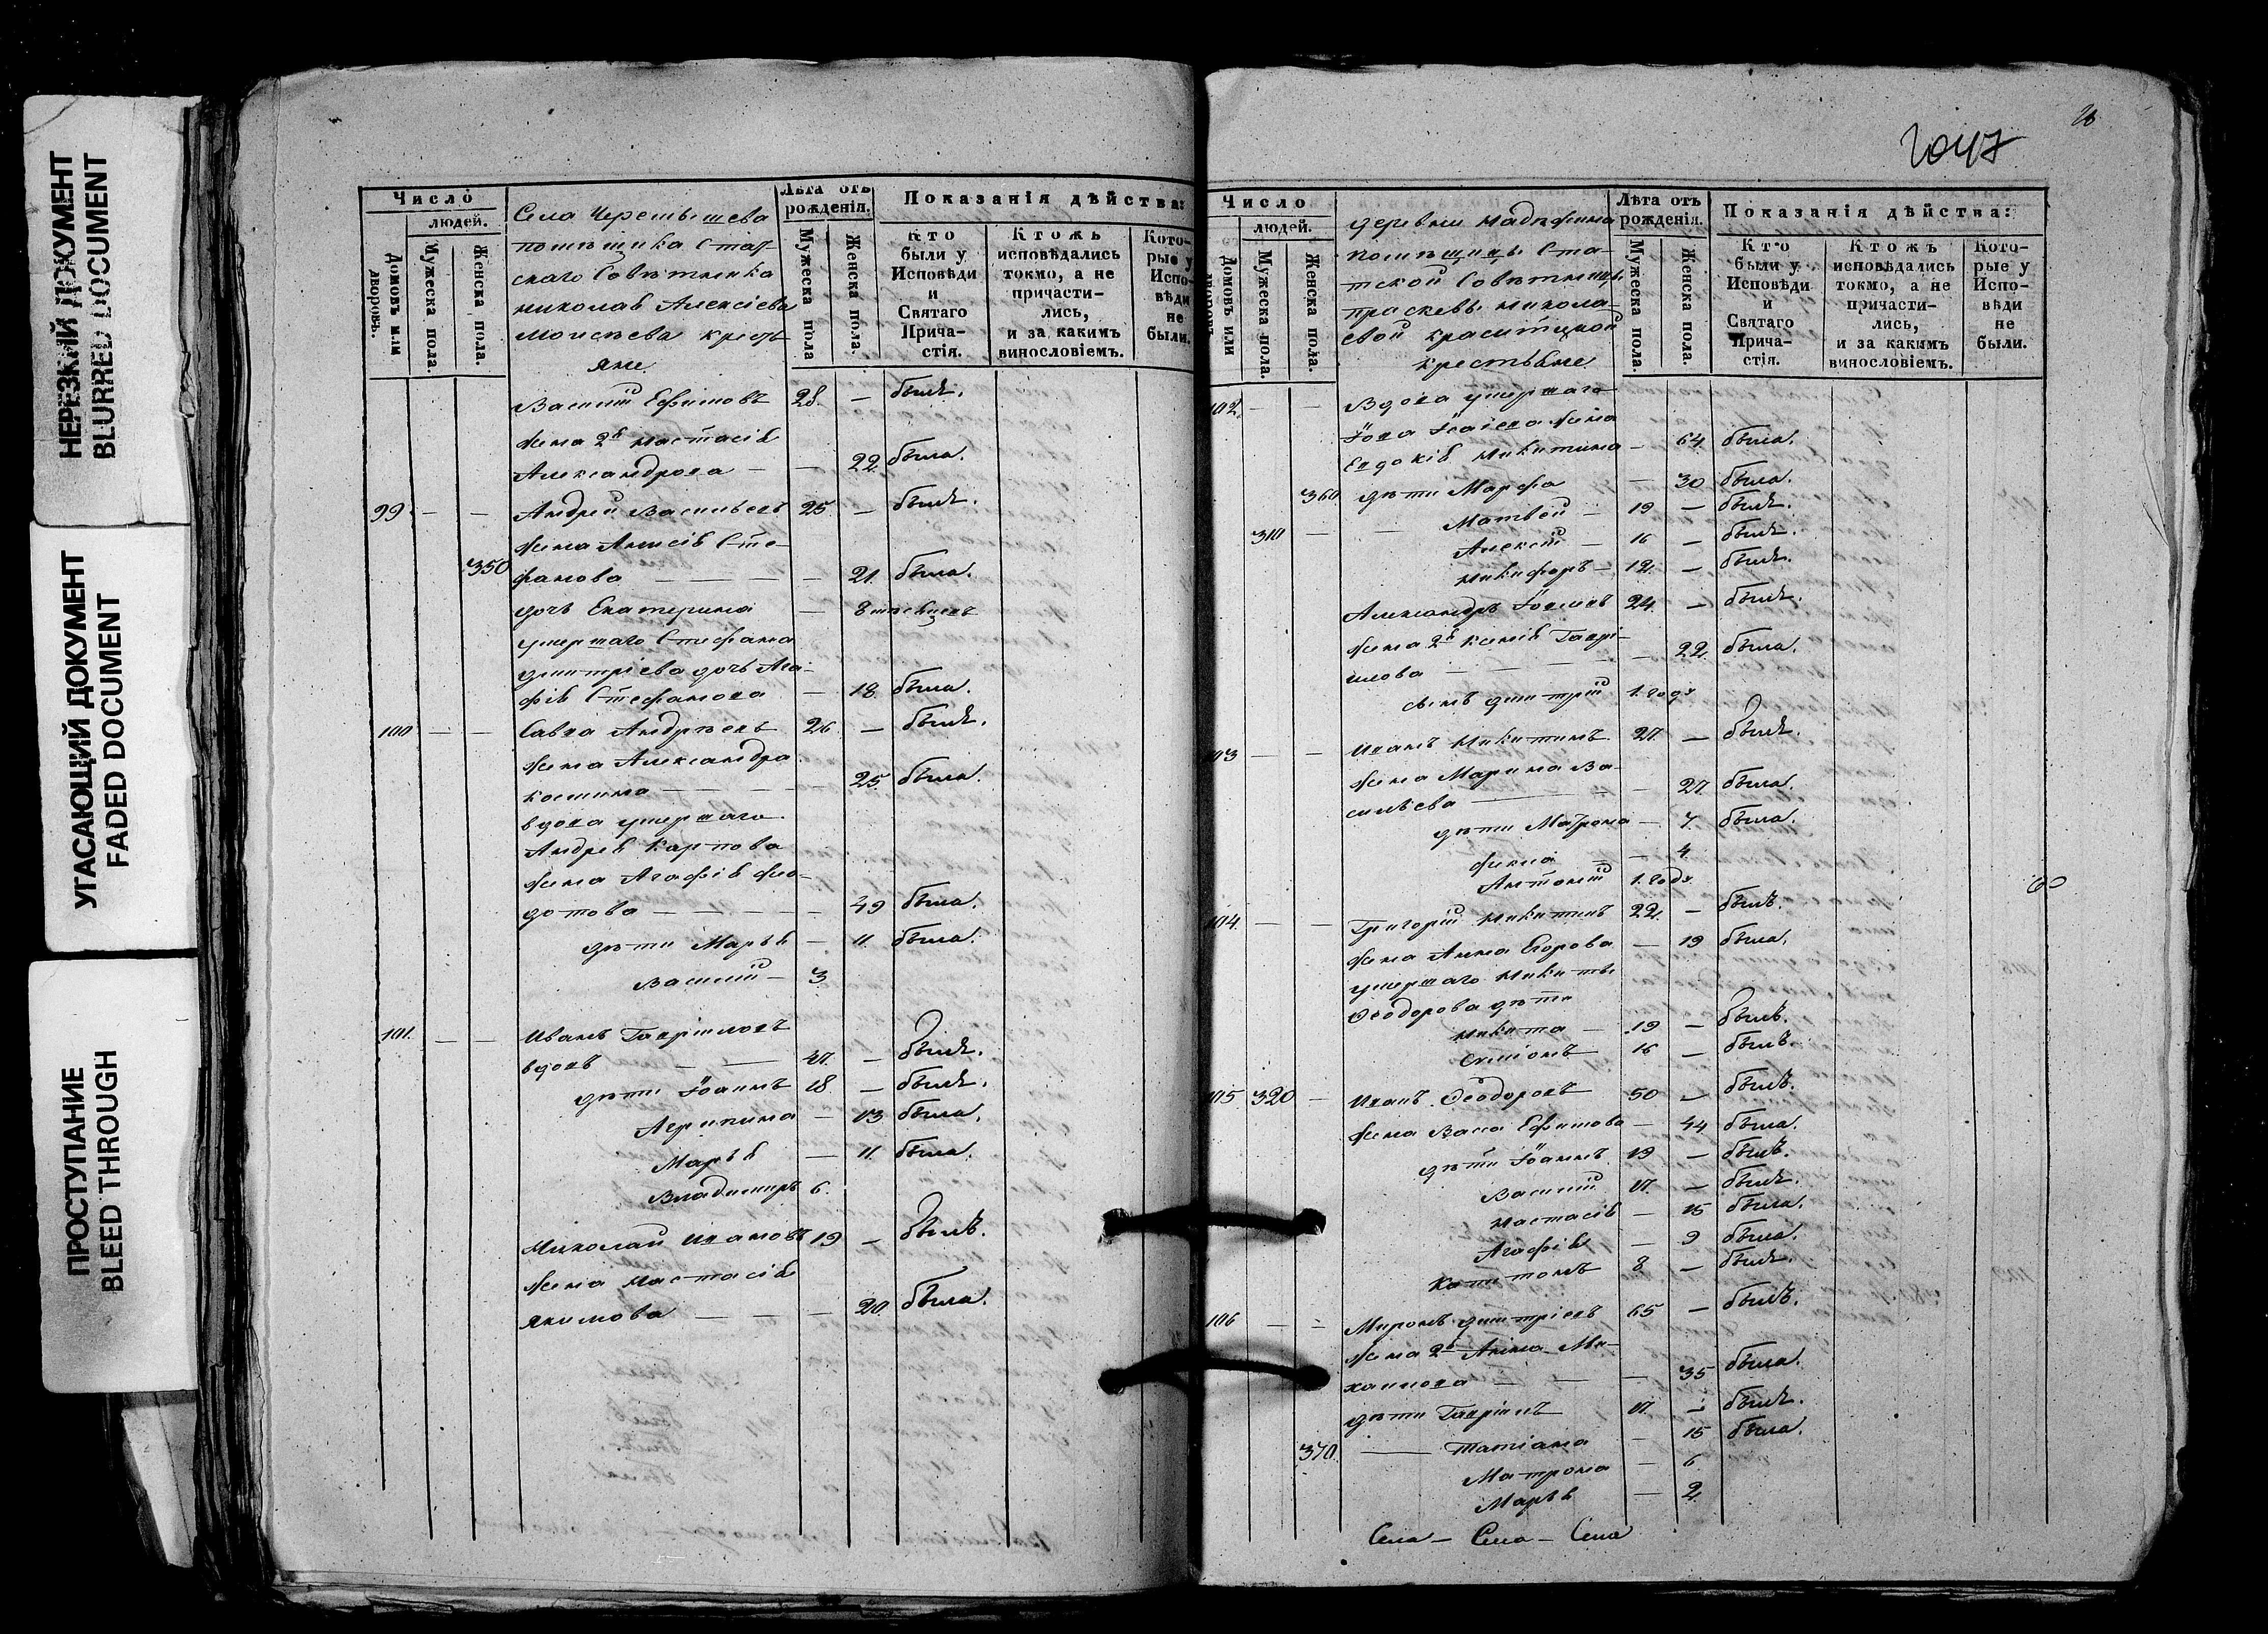 НЕРЕЗКИЙ ДОКУМЕНТ
BLURRED DOCUMENT
УГАСАЮЩИЙ ДОКУМЕНТ
FADED DOCUMENT
ПРОСТУПАНИЕ
BLEED THROUGH
Число
людей.
Домовъ или дворовъ.
Мужеска пола.
Женска пола.
Села Черемышева
помѣщика Стат-
скаго Совѣтника
Николая Алексіева
Моисѣева кресть
яне
Лѣта отъ рожденія.
Мужеска пола
Женска пола.
Показанія дѣйства:
Кто были у Исповѣди и Святаго Прича- стія.
Ктожъ исповѣдались токмо, а не причасти- лись, и за какимъ винословіемъ.
Кото- рые у Испо- вѣди не были.
Василій Ефимовъ 28. — былъ.
Жена 2я Настасія
Александрова — — 22 была.
99. — — Андрей Васильевъ 25. — былъ.
Жена Анисія Сте-
350 фанова — — — — 21. была.
дочь Екатерина — 8 мѣсяцевъ
умершаго Стефана
Дмитріева дочь Ага-
фія Стефанова — 18. была.
100. — — Савва Андреевъ 26. — былъ.
Жена Александра
Космина — — — — 25. была.
вдова умершаго
Андрея Карпова
Жена Агафія Фео-
дотова — — — — 49 была.
дѣти Марья — 11. была.
Василій — 3
101. — — Иванъ Гавриловъ
вдовъ — — 47. — былъ.
дѣти Іоаннъ 18. — былъ.
Агрипина — 13 была.
Марья — 11. была.
Владимиръ 6.
Николай Ивановъ 19 — былъ.
Жена Настасія
Якимова — — — 20. была.
2047
Число
людей.
Домовъ или
Мужеска пола.
Женска пола.
деревни Надѣжина
помѣщицы Ста-
тской Совѣтницы
Прасковьи Никола-
евой
крестьяне
Лѣта отъ рожденія.
Мужеска пола.
Женска пола.
Показанія дѣйства:
Кто были у Исповѣди и Святаго Прича- стія.
Ктожъ исповѣдались токмо, а не причасти- лись, и за какимъ винословіемъ.
Кото- рые у Испо- вѣди не были.
102. — — Вдова умершаго
Іова Исаіева жена
Евдокія Никитина — 64 была.
360 дѣти Марфа — 30 была.
Матвей — 19 — былъ.
310 — — Алексій — 16 — былъ.
Никифоръ — 12. — былъ.
Александръ Іовлевъ 24. — былъ.
Жена 2я Ксенія Гаврі-
илова — — — — 22. была.
сынъ Дмитрій 1. годъ
103 — — Иванъ Никитинъ 27. — былъ.
Жена Марина Ва-
сильева — — — 27. была.
дѣти Матрона — 7. была.
Фекла — — 4.
Антоній 1. годъ
104. — — Григорій Никитинъ 22. — былъ.
Жена Анна Егорова — 19 была.
умершаго Никиты
Ѳеодорова дѣти
Никита — 19 — былъ.
Симіонъ 16 — былъ.
105 320 — Иванъ Ѳеодоровъ 50 — былъ.
Жена Васа Ефимова — 44 была.
дѣти Іоаннъ 19 — былъ.
Василій 17. — былъ.
Настасія — 15 была.
Агафія — 9 была.
Капитонъ 8. — былъ.
106 — — Миронъ Дмитріевъ 65 — былъ.
Жена 2я Анна Ми-
хаилова — — — 35 была.
дѣти Гавріилъ 17. — былъ.
370. — Татіана — 15 была.
Матрона — 6
Марья — 2
Села — Села — Села